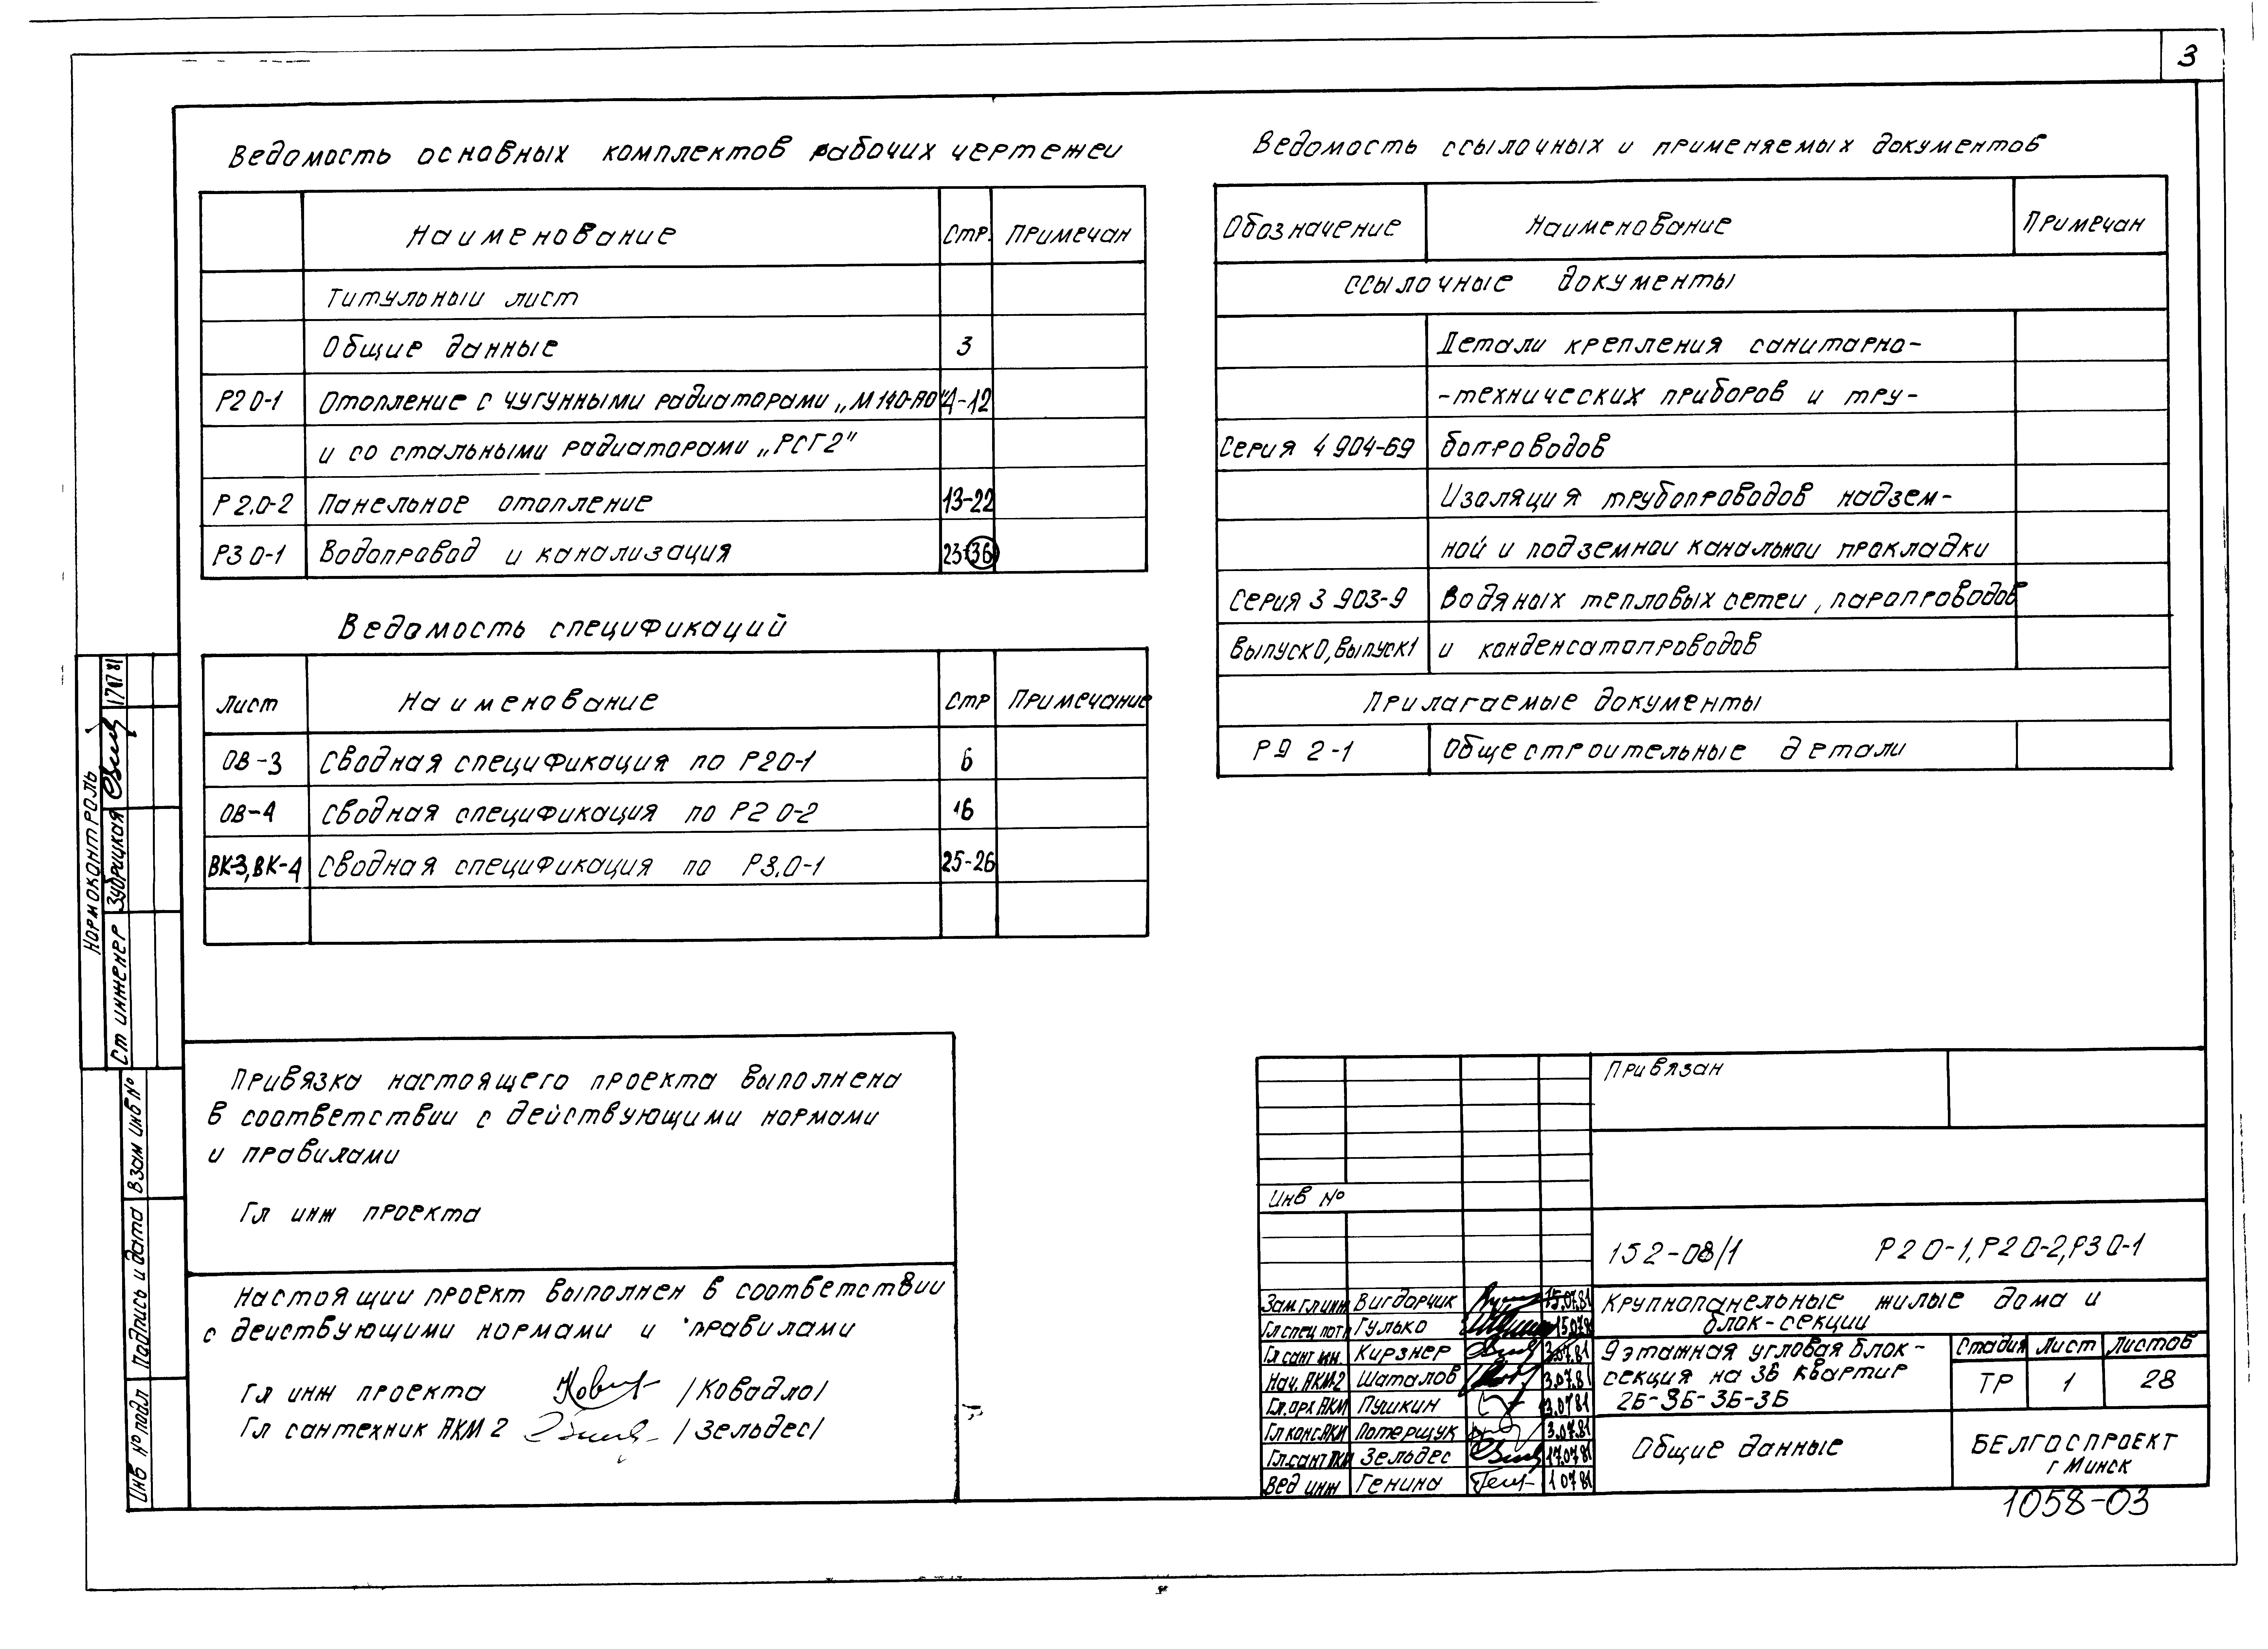 3
Ведомость основных комплектов рабочих чертежеи
Наименование Стр. Примечан
Титульныи лист
Общие данные 3
Р2 0-1 Отопление с чугунными радиаторами „М 140-АО" 4-12
и со стальными радиаторами „РСГ2"
Р 2.0-2 Панельное отопление 13-22
Р3 0-1 Водопровод и канализация 23-36
Ведомость спецификаций
Лист Наименование Стр Примечание
ОВ-3 Сводная спецификация по Р2 0-1 6
ОВ-4 Сводная спецификация по Р2 0-2 16
ВК-3, ВК-4 Сводная спецификация по Р3.0-1 25-26
Ведомость ссылочных и применяемых документов
Обозначение Наименование Примечан
ссылочные документы
Детали крепления санитарно-
-технических приборов и тру-
Серия 4 904-69 бопроводов
Изоляция трубопроводов надзем-
ной и подземнои канальнои прокладки
Серия 3 903-9 Водяных тепловых сетеи, паропроводов
Выпуск 0, Выпуск 1 и конденсатопроводов
Прилагаемые документы
Р9 2-1 Общестроительные детали
Нормоконтроль
Ст инженер Зубрицкая 17 07 81
Взам инв №
Подпись и дата
Инв № подл
Привязка настоящего проекта выполнена
в соответствии с действующими нормами
и правилами
Гл инж проекта
Настоящии проект выполнен в соответствии
с деиствующими нормами и правилами
Гл инж проекта /Ковадло/
Гл сантехник АКМ 2 /Зельдес/
Привязан
Инв №
152-08/1 Р2 0-1, Р2 0-2, Р3 0-1
Зам. гл инж Вигдорчик 15.07.81
Гл спец потп Гулько 15.07.8
Гл сант ин. Кирзнер 3.07.81
Нач. АКМ-2 Шаталов 3.07.81
Гл. арх АКМ Пушкин 3.07 81
Гл конс. АКМ Потерщук 3.07.81
Гл. сант АКМ Зельдес 17.07.81
Вед инж Генина 1 07 81
Крупнопанельные жилые дома и
блок-секции
9 этажная угловая блок-
секция на 36 квартир
2Б-3Б-3Б-3Б
Стадия Лист Листов
ТР 1 28
Общие данные
БЕЛГОСПРОЕКТ
г Минск
1058-03